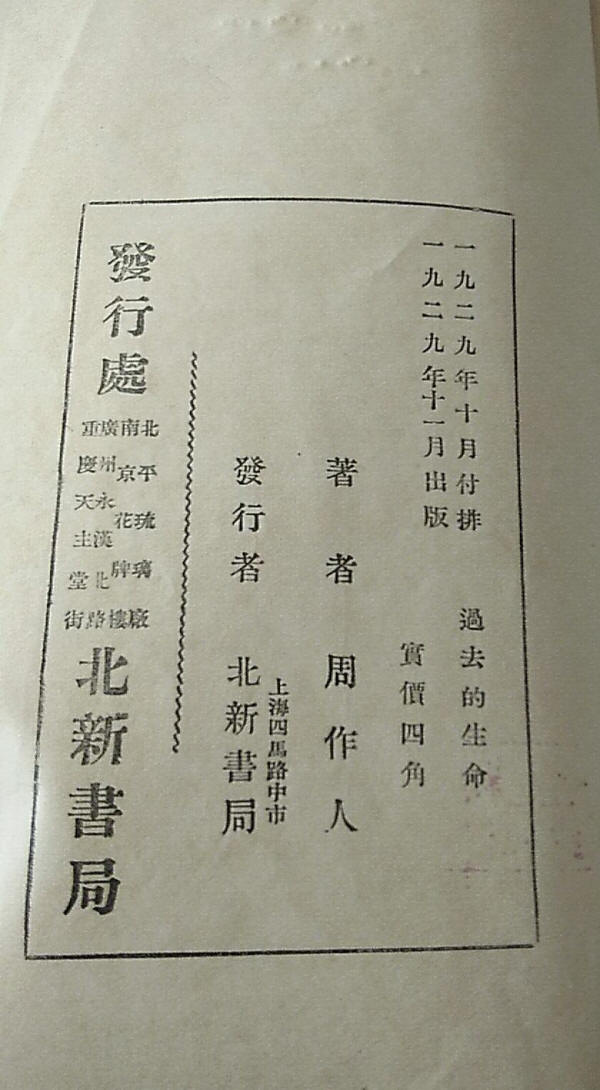 一九二九年十月付排
一九二九年十一月出版
過去的生命
實價四角
著者 周作人
發行者 上海四馬路中市 北新書局
發行處
北平琉璃廠
南京花牌樓
廣州永漢北路
重慶天主堂街
北新書局